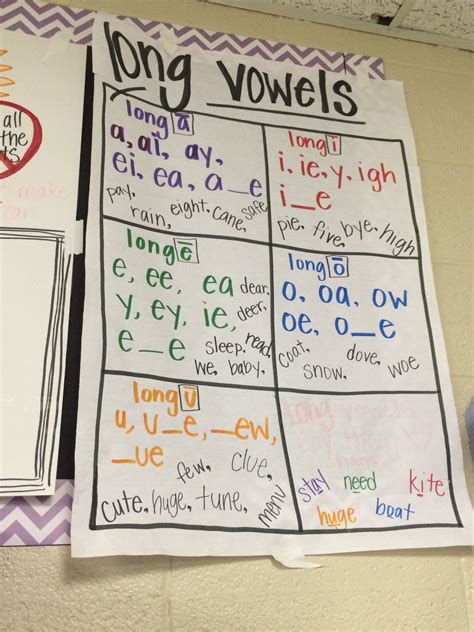 long vowels
long ā
a, ai, ay,
ei, ea, a_e
pay, rain, eight, cane, safe
long ī
i, ie, y, igh
i_e
pie, five, bye, high
long ē
e, ee, ea
y, ey, ie,
e_e
dear, deer, read,
sleep,
we, baby,
long ō
o, oa, ow
oe, o_e
coat, snow, dove, woe
long ū
u, u_e, _ew,
_ue
few, clue,
cute, huge, tune, menu
long vowels
stay need kite
huge boat
all
the